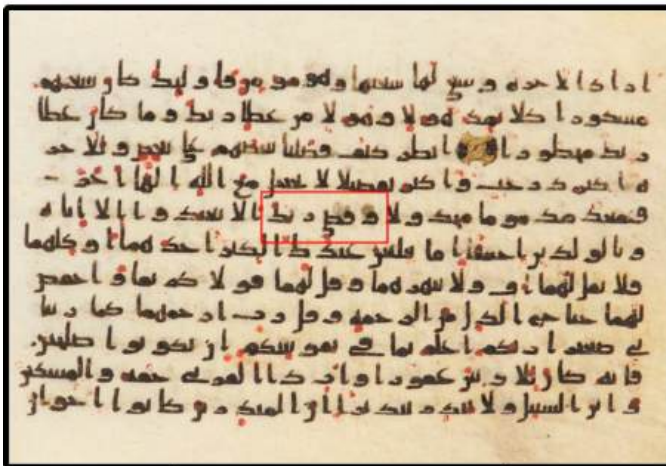 اراد الاخرة وسعى لها سعيها وهو مومن فاوليك كان سعيهم
مشكورا كلا نمد هولا وهولا من عطا ربك وما كان عطا
ربك محظورا انظر كيف فضلنا بعضهم على بعض وللاخر
ة اكبر درجت واكبر تفضيلا لا تجعل مع الله الها اخر
فتقعد مذموما مخذولا وقضى ربك الا تعبدوا الا اياه
وبالولدين احسنا اما يبلغن عندك الكبر احدهما او كلهما
فلا تقل لهما اف ولا تنهرهما وقل لهما قولا كريما واخفض
لهما جناح الذل من الرحمة وقل رب ارحمهما كما ربيا
ني صغيرا ربكم اعلم بما في نفوسكم ان تكونوا صلحين
فانه كان للاوبين غفورا وات ذا القربى حقه والمسكين
وابن السبيل ولا تبذر تبذيرا ان المبذرين كانوا اخون